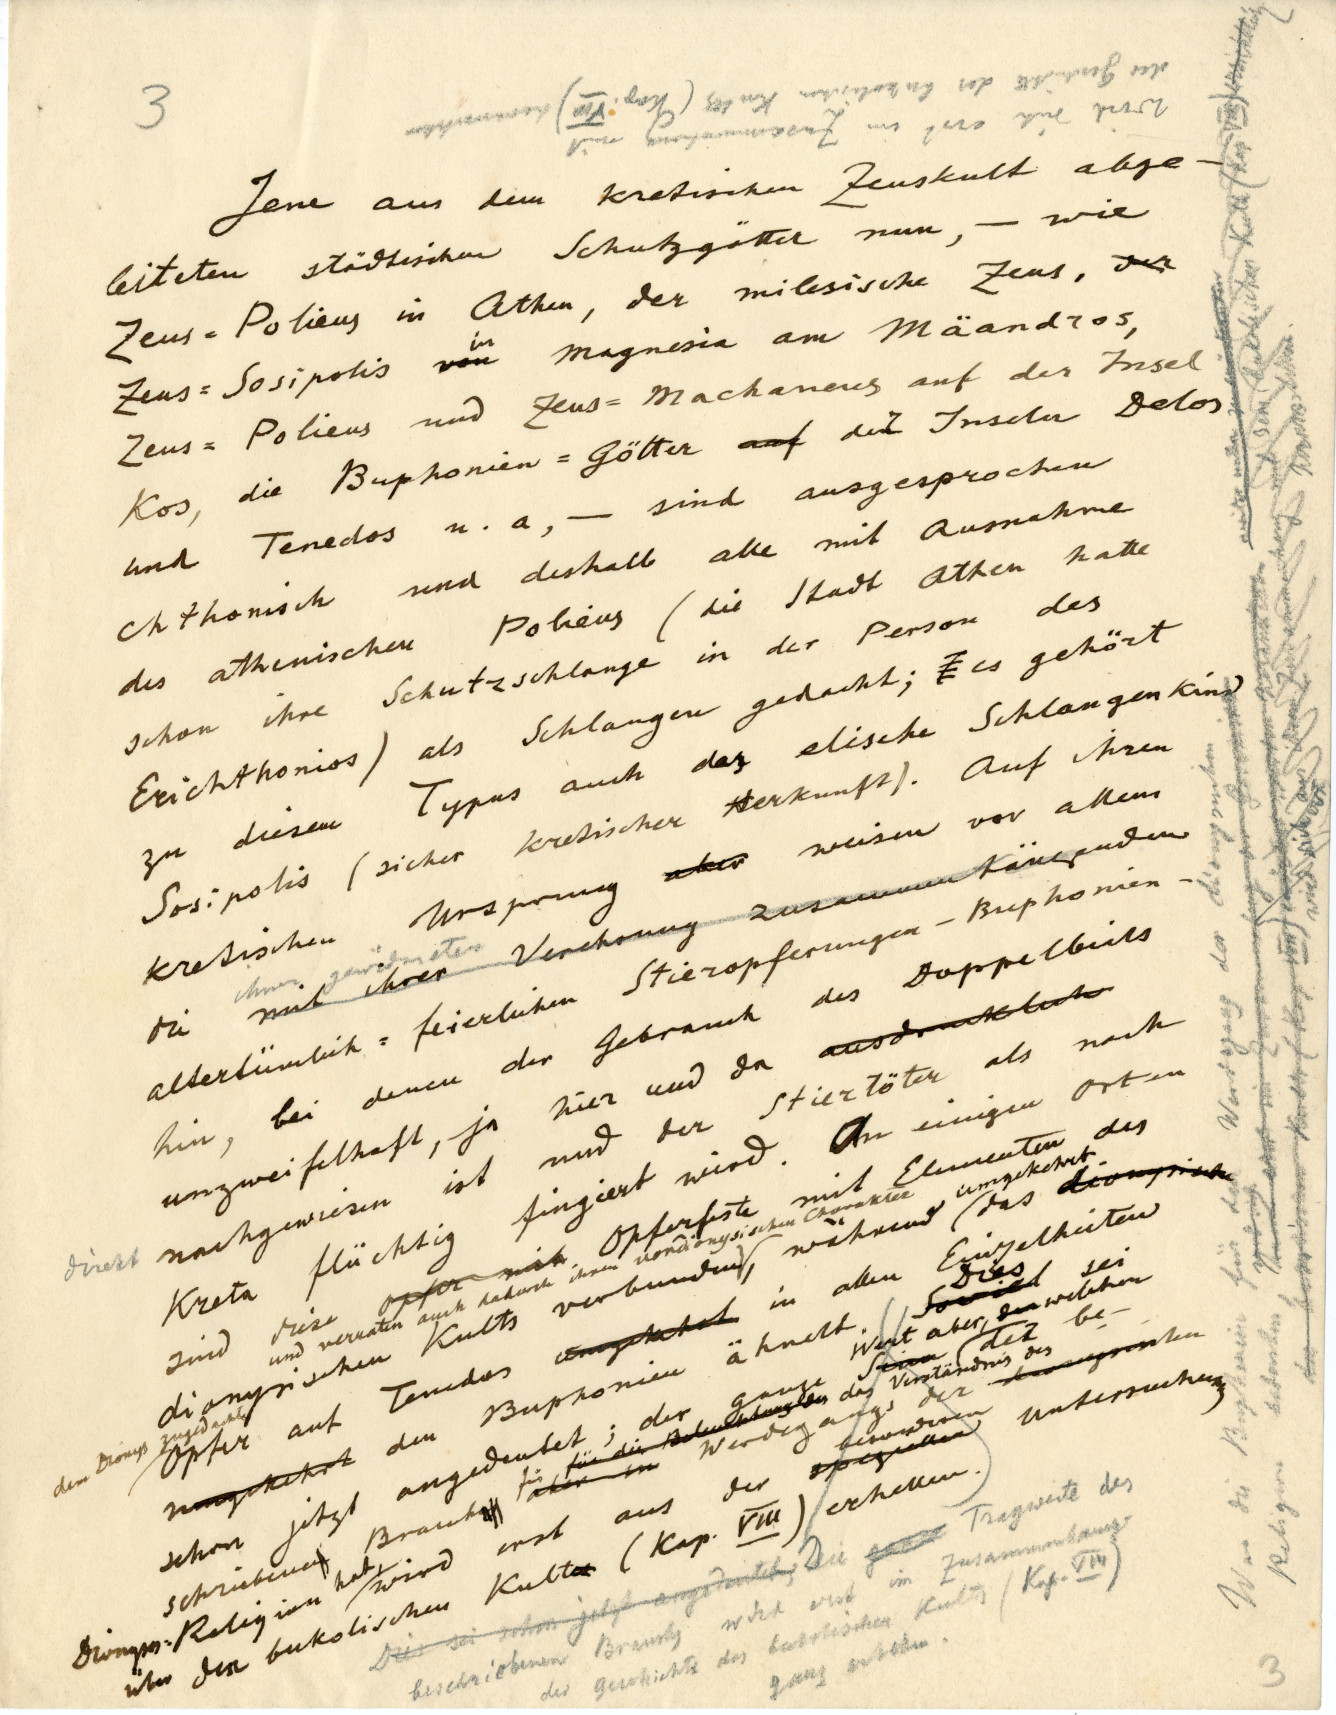 3
wird sich erst im Zusammenhang mit
der Geschichte des bukolischen Kults (Kap. VIII) herausstellen
Jene aus dem kretischen Zeuskult abge-
leiteten städtischen Schutzgötter nun, — wie
Zeus=Polieus in Athen, der milesische Zeus, der
Zeus=Sosipolis von in Magnesia am Mäandros,
Zeus=Polieus und Zeus=Machaneus auf der Insel
Kos, die Buphonien=Götter auf der Inseln Delos
und Tenedos u. a, — sind ausgesprochen
chthonisch und deshalb alle mit Ausnahme
des athenischen Polieus (die Stadt Athen hatte
schon ihre Schutzschlange in der Person des
Erichthonios) als Schlangen gedacht; es gehört
zu diesem Typus auch das elische Schlangenkind
Sosipolis (sicher kretischer Herkunft). Auf ihren
kretischen Ursprung aber weisen vor allem
ihnen gewidmeten
die mit ihrer Verehrung zusammenhängenden
altertümlich=feierlichen Stieropferungen-Buphonien-
hin, bei denen der Gebrauch des Doppelbeils
unzweifelhaft, ja hier und da ausdrücklich
direkt nachgewiesen ist und der Stiertöter als nach
Kreta flüchtig fingiert wird. An einigen Orten
sind diese Opfer mit Opferfeste mit Elementen des
und verraten auch dadurch ihren vordionysischen Charakter umgekehrt
dionysischen Kults verbunden, während (das dionysische
dem Dionys zugedachte
Opfer auf Tenedos umgekehrt in allen Einzelheiten
umgekehrt den Buphonien ähnelt. Soviel Dies sei
schon jetzt angedeutet; der ganze Sinn Wert aber, den welchen der be-
schriebene Brauch für für die Beleuchtung des das Verständnis des
aber in Werdegangs der dionysischen
Dionysos=Religion hat, wird erst aus der speziellen besonderen Untersuchung
über den bukolischen Kult (Kap. VIII) erhellen.
Dies sei schon jetzt angedeutet; Die ganze Tragweite des
beschriebenen Brauchs wird erst im Zusammenhange
der Geschichte des bukolischen Kults (Kap. VIII)
ganz erhellen.
Was die Buphonien für den Werdegang der dionysischen
Religion bedeuten
3